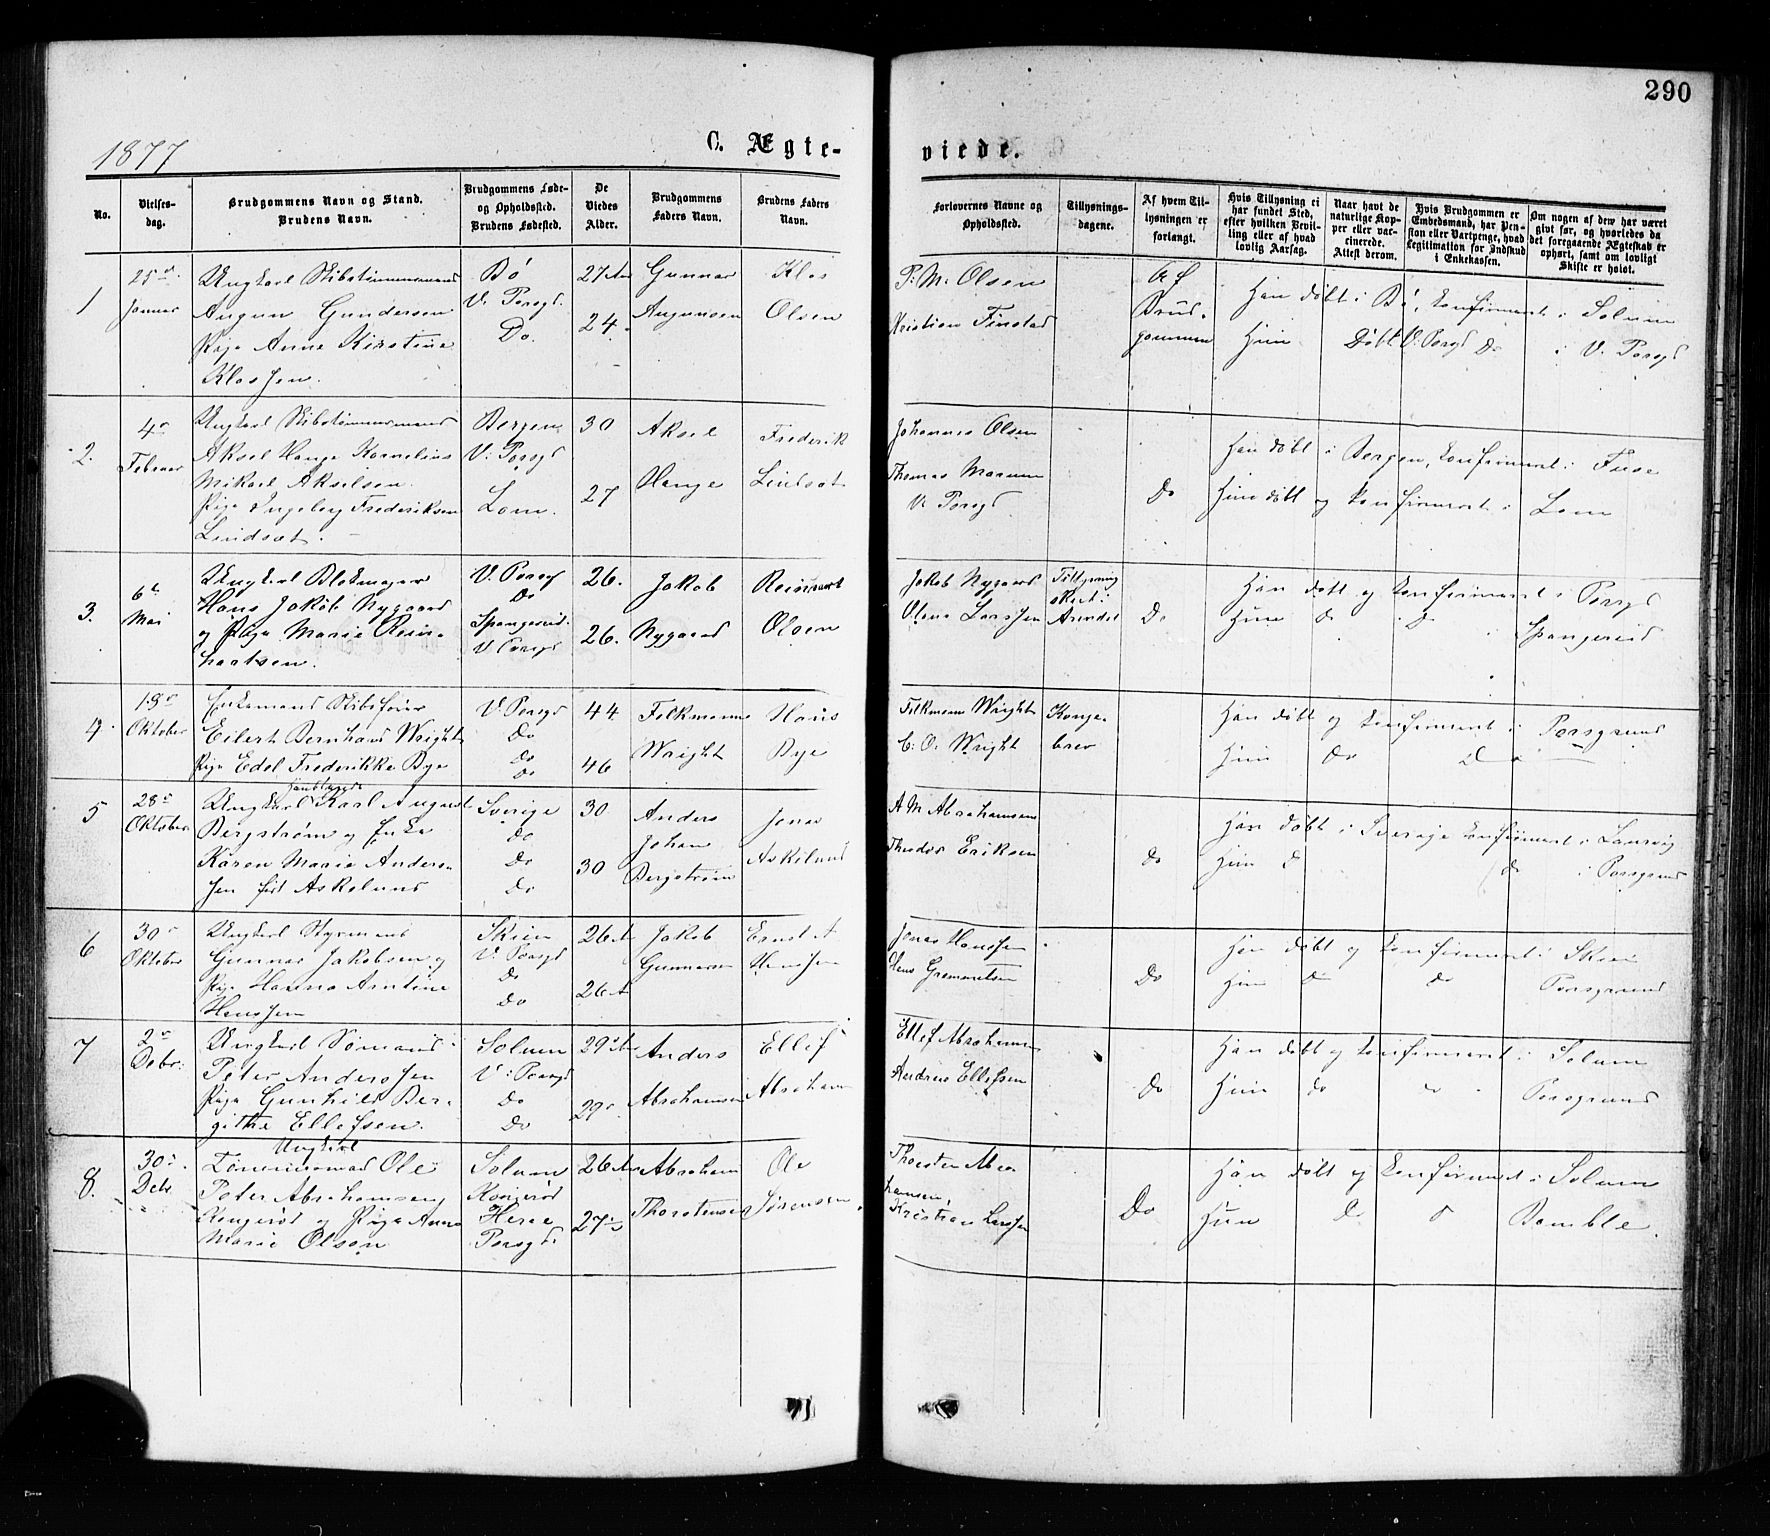 290
1877
C. Ægte-
viede.
No.
Vielses-
dag.
Brudgommens Navn og Stand.
Brudens Navn.
Brudgommens Føde-
og Opholdssted.
Brudens Fødested.
De
Viedes
Alder.
Brudgommens
Faders Navn.
Brudens Faders
Navn.
Forlovernes Navne og
Opholdssted.
Tillysnings-
dagene.
Af hvem Til-
lysningen er
forlangt.
Hvis Tillysning ei
har fundet Sted,
efter hvilken Bevil-
ling eller af hvad
lovlig Aarsag.
Naar havt de
naturlige Kop-
per eller vac-
cinerede.
Attest derom.
Hvis Brudgommen er
Embedsmand, har Pen-
sion eller Vartpenge, hvad
Legitimation for Indskud
i Enkekassen.
Om nogen af dem har været
givt før, og hvorledes da
det foregaaende Ægteskab er
ophørt, samt om lovligt
Skifte er holdt.
1
25de
Januar
Ungkarl Skibstømmermand
Augun Gundersen
Pige Anne Kirstine
Klassen.
Bö
V. Porsgd.
Do.
27
24
Gunnar
Augunsen
Klas
Olsen
P. M. Olsen
Kristian Finstad
Af
Brud-
gommen
Han döbt i Bö, konfirmeret i Solum
Hun Döbt V. Porsgd Do i V. Porsgd
2.
4de
Februar
Ungkarl Skibstømmermand
Aksel Hange Kornelius
Mikael Akselsen.
Pige Ingeborg Frederiksen
Lindsæt.
Bergen
V. Porsgd
Lom.
30
27
Aksel
Hange
Frederik
Lindsæt
Johannes Olsen
Thomas
V. Porsgd
Do
Han döbt i Bergen, konfirmeret i Fuse
Hun döbt og konfirmeret i Lom
3.
6te
Mai
Ungkarl Blokmager
Hans Jakob Nygaard
og Pige Marie Rein-
hartsen.
V. Porsgd
Do
Spangereid
V. Porsgd
26.
26.
Jakob
Nygaard
Reinhart
Olsen
Jakob Nygaard
Olaus Larssen
Tillysning
skeet i
Arendal
Do
Han döbt og konfirmeret i Porsgd
Hun do Do Spangereid
4.
19de
Oktober
Enkemand Skibsfører
Eilert Bernhard Wright
Pige Edel Frederikke Bye
V. Porsgd
Do
do
Do
44
46
Felkmann
Wright
Hans
Bye
Felkmann Wright
C. O. Wright
Konge-
brev
Han döbt og konfirmeret i Porsgrund
Hun Do Do
5
28de
Oktober
Ungkarl Karl August
Bergström og Enke
Karen Marie Anders-
sen föd Askelund
Sverige
do
Do
Do
30
30
Anders
Johan
Bergström
Jonas
Askelund
A M Abrahamsen
Theodor Eriksen
Do
Han döbt i Sverige konfirmeret i Laurvig
Hun do do i Porsgrund
6
30de
Oktober
Ungkarl Styrmand
Gunnar Jakobsen og
Pige Hanna Arntine
Hanssen
Skien
V. Porsgd
Do
Do
26
26
Jakob
Gunnarsen
Ernst A
Hanssen
Jonas Hanssen
Do
Han döbt og konfirmeret i Skien
Hun do do Porsgrund
7
2de
Debr:
Ungkarl Sömand
Peter Anderssen
Pige Gunhild Ber-
githe Ellefsen.
Solum
V: Porsgd
Do
Do
29
29
Anders
Abrahamsen
Ellef
Abraham
Ellef Abrahamsen
Andreas Ellefsen
Do
Han döbt og konfirmeret i Solum
Hun do Porsgrund
8.
30de
Debr
Ungkarl
Tömmermand Ole
Peter Abrahamsen
Kongeröd og Pige Anne
Marie Olsen
Solum
Kongeröd
Herre
Porsgd.
26
27
Abraham
Thorstensen
Ole
Sörensen.
Thorsten Abra
hamsen,
Kristian Larssen
Do
Han döbt og konfirmeret i Solum
Hun Do Bamble.